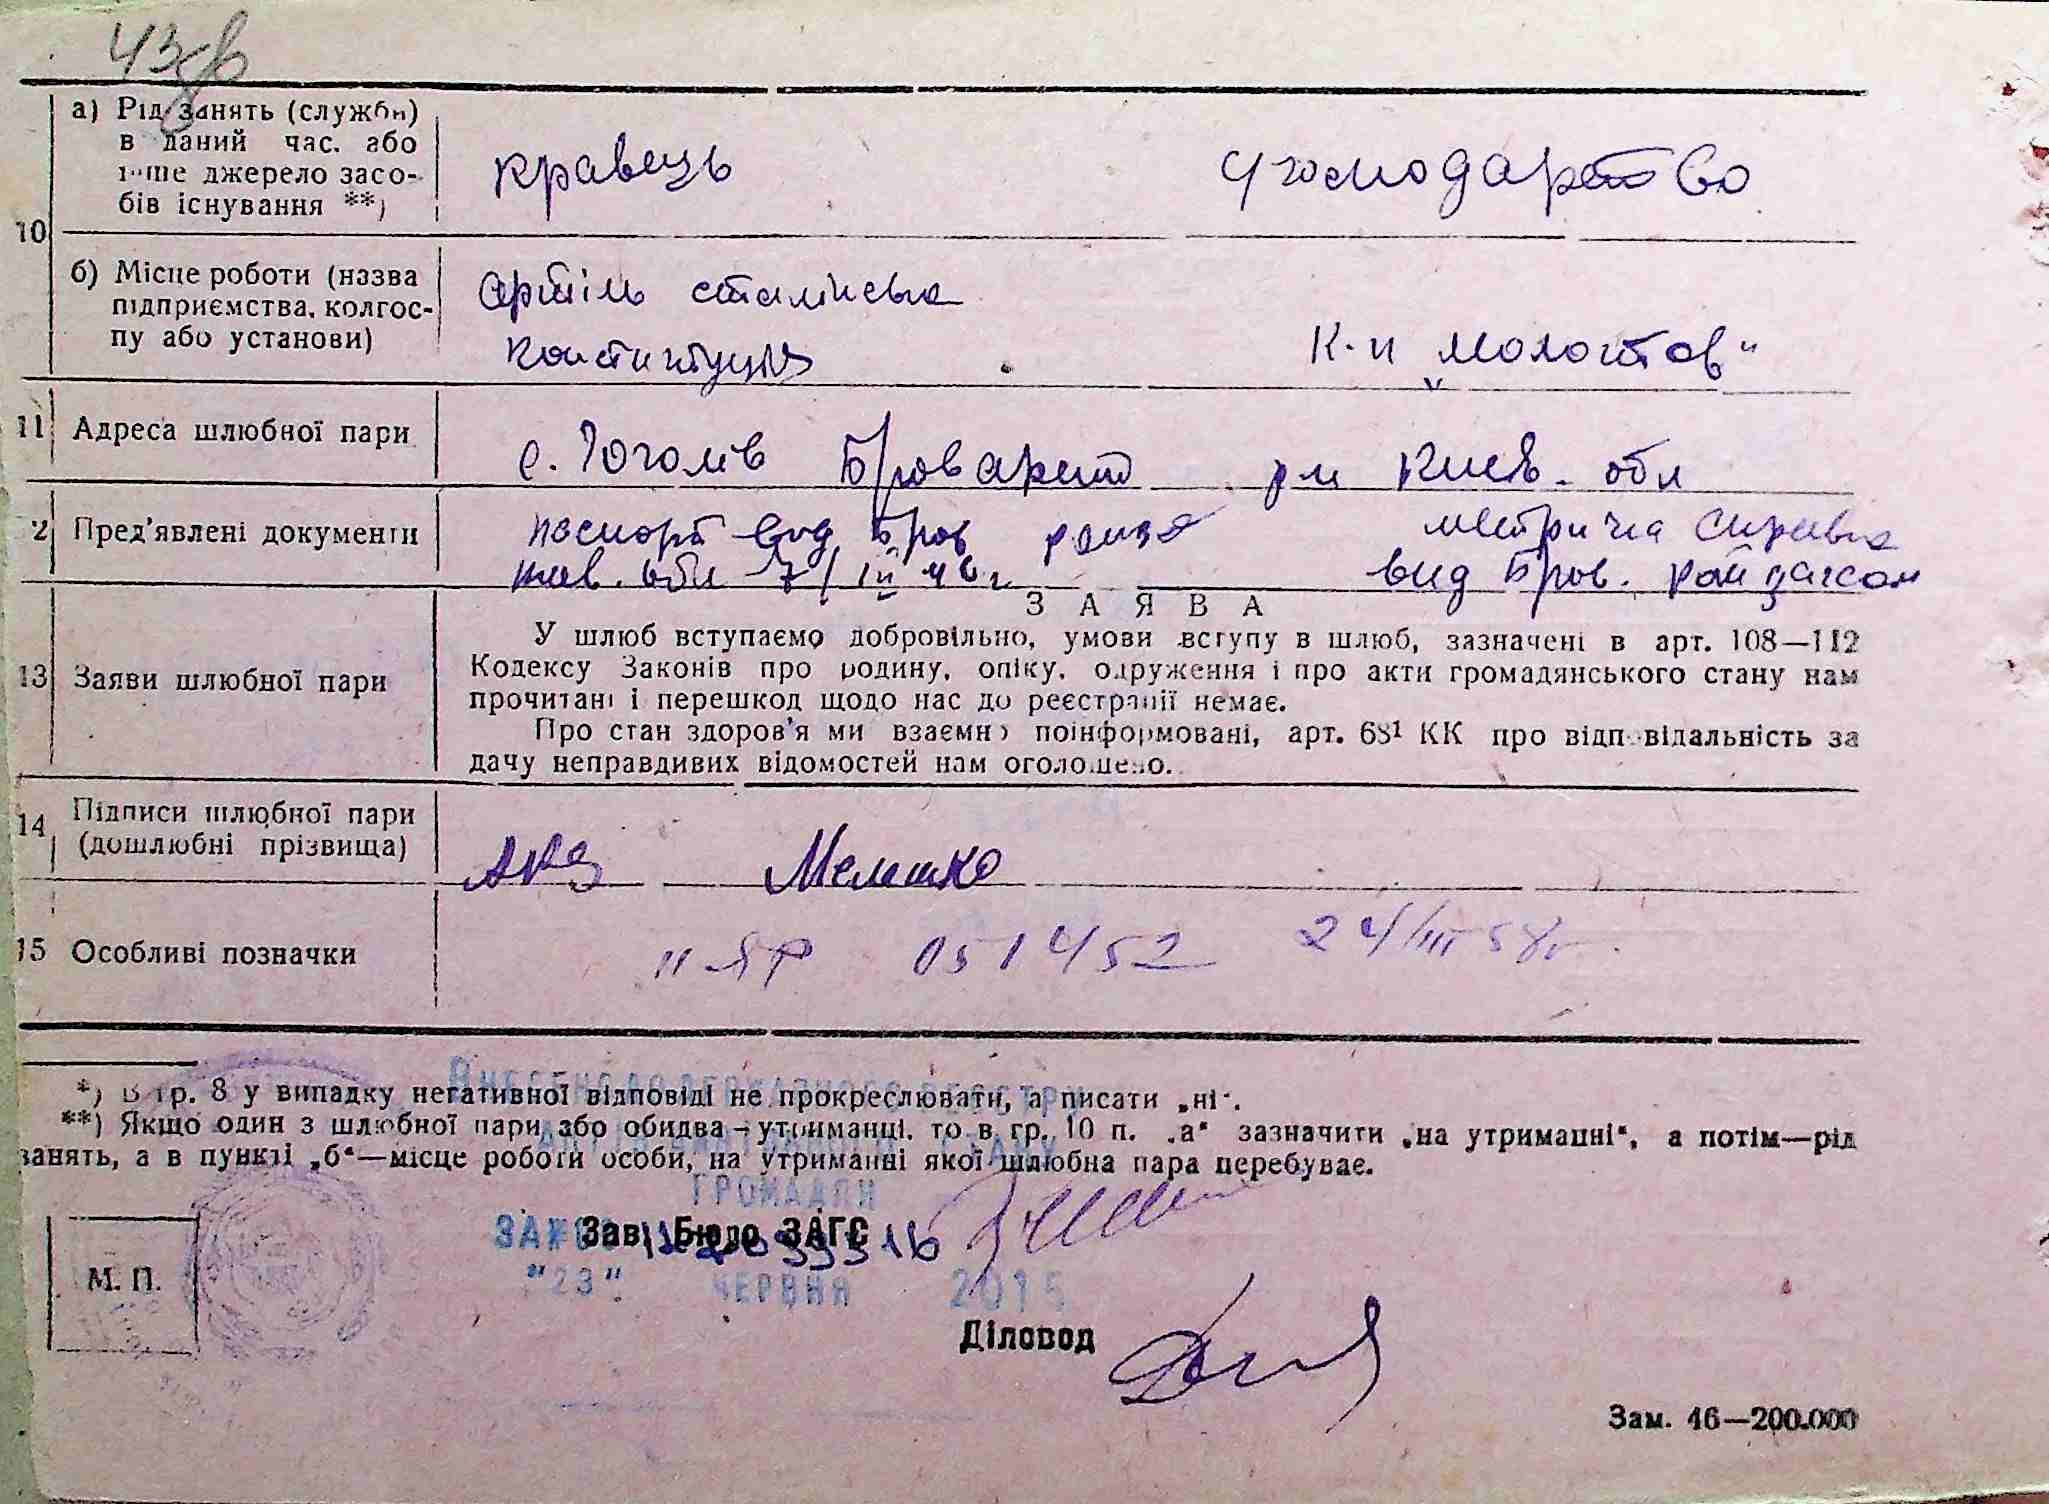 43
10
а) Рід занять (служби)
в даний час. або
інше джерело засо-
бів існування **)
кравець
госмодарство
б) Місце роботи (назва
підприємства, колгос-
пу або установи)
артіль сталінська
конституція
к-п „Молотов“
11 Адреса шлюбної пари
с. Гоголів Броварськ р-н Києв. обл
2 Пред'явлені документи
паспорт вид Бров
метрична справка
обл 7/ІІ 40 г.
вид Бров. райзагсом
ЗАЯВА
13 Заяви шлюбної пари
У шлюб вступаємо добровільно, умови вступу в шлюб, зазначені в арт. 108—112
Кодексу Законів про родину, опіку, одруження і про акти громадянського стану нам
прочитані і перешкод щодо нас до реєстрації немає.
Про стан здоров'я ми взаємно поінформовані, арт. 68¹ КК про відповідальність за
дачу неправдивих відомостей нам оголошено.
14 Підписи шлюбної пари
(дошлюбні прізвища)
Мелешко
15 Особливі позначки
II ЯР 051452 24/III 58г.
*) В гр. 8 у випадку негативної відповіді не прокреслювати, а писати „ні“.
**) Якщо один з шлюбної пари або обидва—утриманці, то в гр. 10 п. „а“ зазначити „на утриманні“, а потім—рід
занять, а в пункті „б“—місце роботи особи, на утриманні якої шлюбна пара перебуває.
ГРОМАДЯН
Зав. Бюро ЗАГС
"23" ЧЕРВНЯ 2015
М. П.
Діловод
Зам. 46—200.000